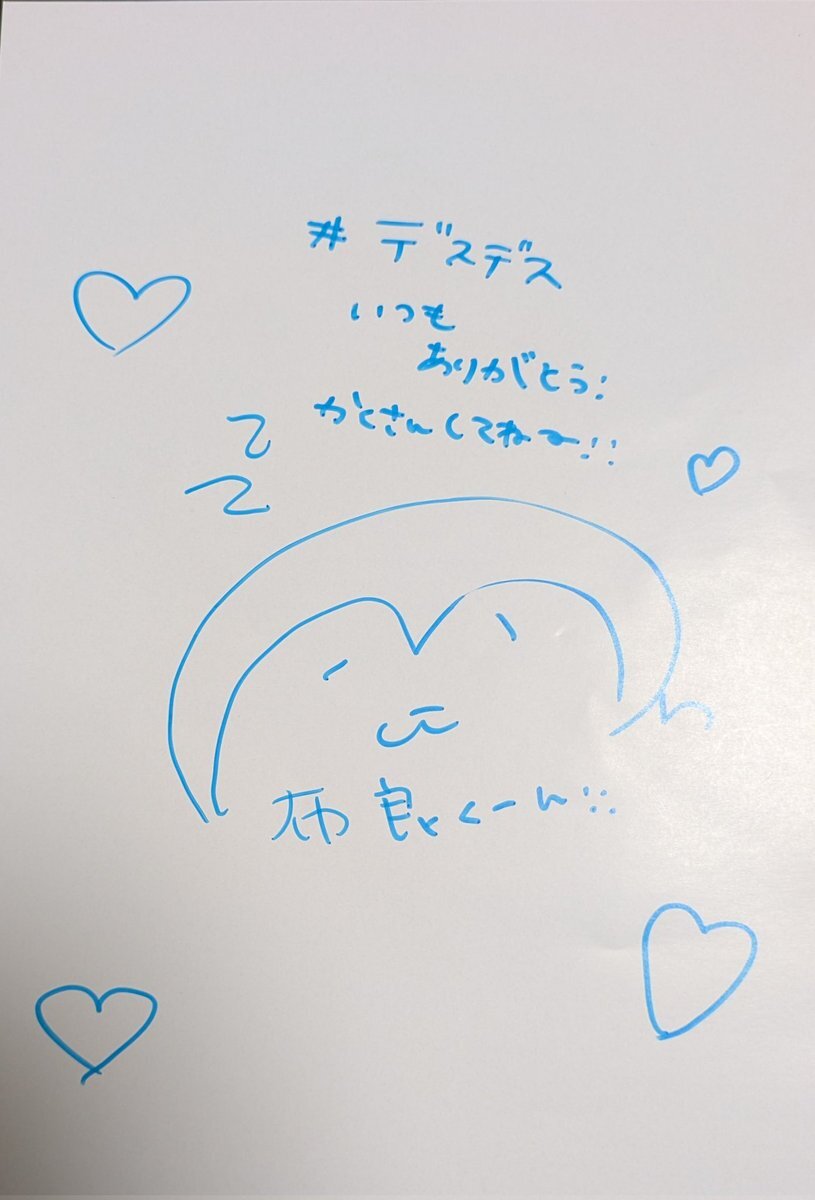 #デスデス
いつも
ありがとう!
かくさんしてねー!!
布良くーん!!